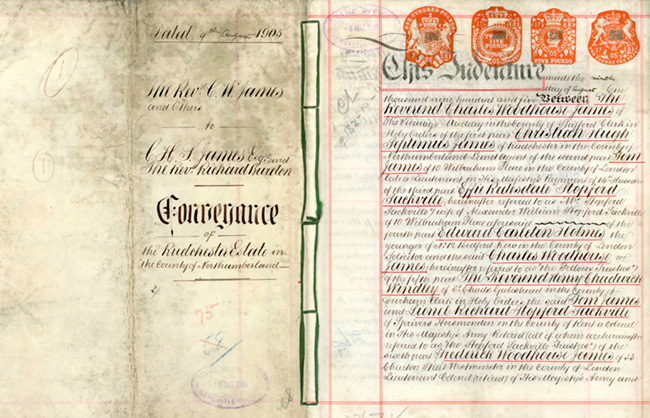 Dated 9th August 1905
The Revd. C. W. James
and Others
to
C. H. S. James Esqre. and
The Revd. Richard Burdon
Conveyance
of
the Rudchester Estate in
the County of Northumberland
75
FIVE POUNDS
This Indenture made the ninth
day of August One
thousand nine hundred and five Between The
Reverend Charles Woodhouse James of
The Vicarage in the County of Clerk in
Holy Orders of the first part Christian Hugh
Septimus James of Rudchester in the County of
Northumberland Land Agent of the second part Tom
James of 10 Wilbraham Place in the County of London
late a Lieutenant in His Majesty's Regiment of Hussars
of the third part Effie Stopford
Sackville hereinafter referred to as Mrs. Stopford
Sackville wife of Alexander William Stopford Sackville
of 10 Wilbraham Place aforesaid of the
fourth part Edward Holmes the
younger of Bedford Row in the County of London
Solicitor and the said Charles Woodhouse
James (hereinafter referred to as "the Trustees")
of the fifth part The Reverend Henry Chadwick
Windley of St. Chads Gateshead in the County of
Durham Clerk in Holy Orders the said Tom James
and Lionel Richard Stopford Sackville
of Horsmonden in the County of Kent a Colonel
in His Majesty's Army Retired (all of whom are hereinafter
referred to as "the Stopford Sackville Trustees") of the
sixth part Frederick Woodhouse James of
Street Westminster in the County of London
Lieutenant Colonel (retired) of His Majesty's Army and